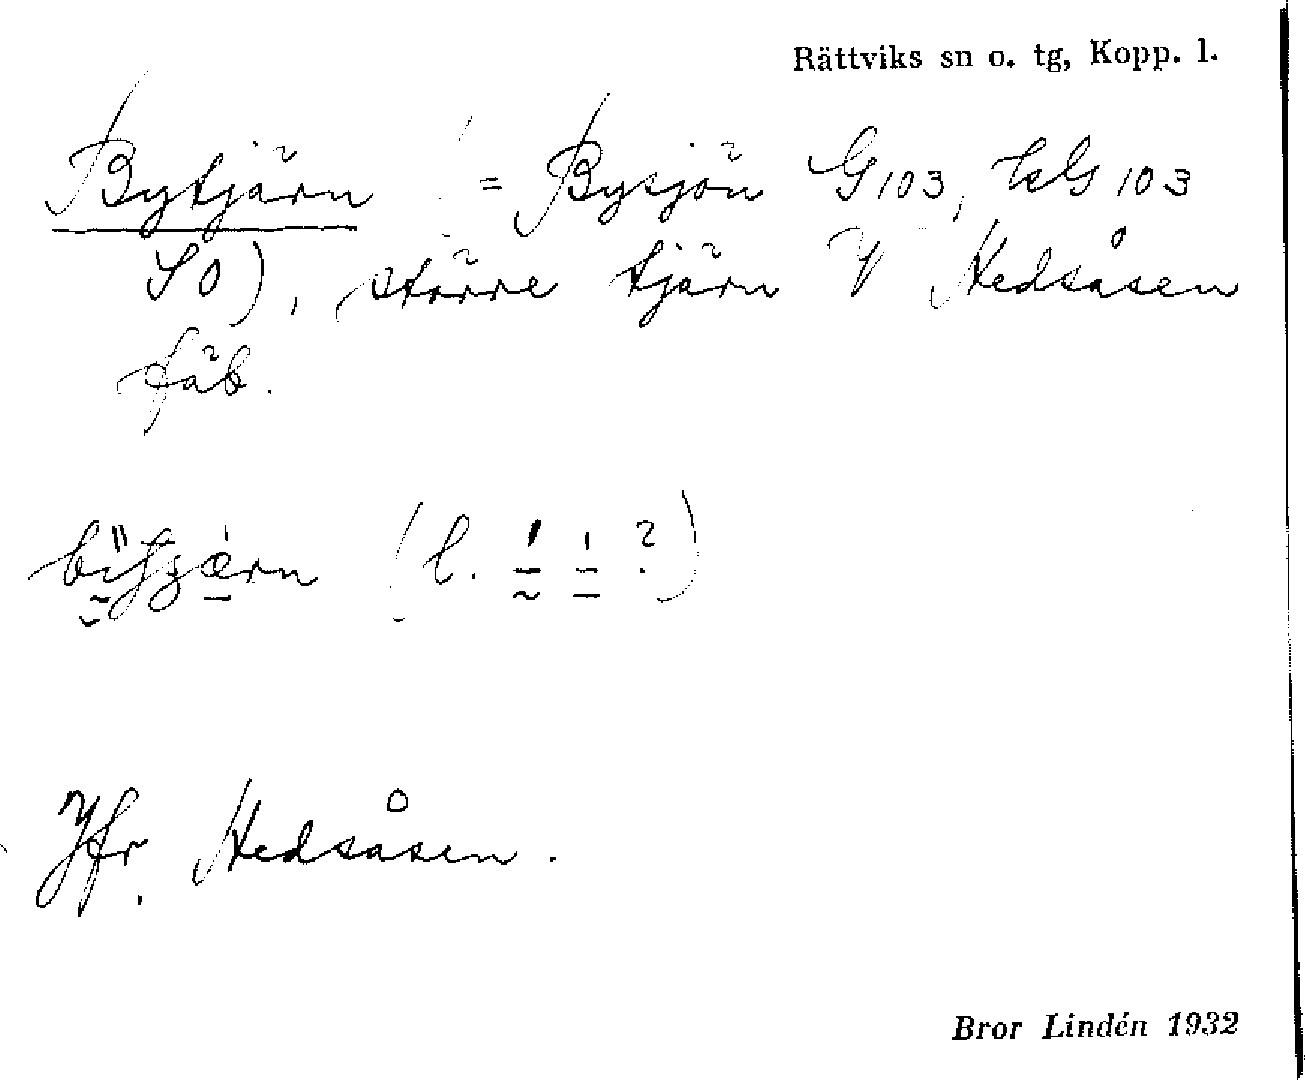 Rättviks sn o. tg, Kopp. l.
Bytjärn (= Bysjön G 103, LG 103
SO), större tjärn V Hedsåsen
fäb.
(l.
Jfr. Hedsåsen.
Bror Lindén 1932